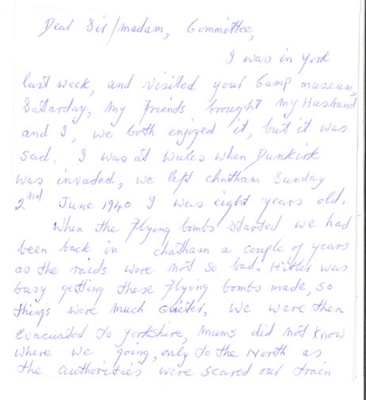 Dear Sir/Madam, Committee,
I was in York
last week, and visited your Camp museum,
Saturday, my friends brought my Husband
and I, we both enjoyed it, but it was
sad. I was at Wales when Dunkirk
was invaded, we left chatham Sunday
2nd June 1940 I was eight years old.
When the flying bombs started we had
been back in chatham a couple of years
as the raids were not so bad. Hitler was
busy getting these flying bombs made, so
things were much quieter, we were then
Evacuated to Yorkshire, mums did not know
where we going, only to the North as
the authorities were scared our train